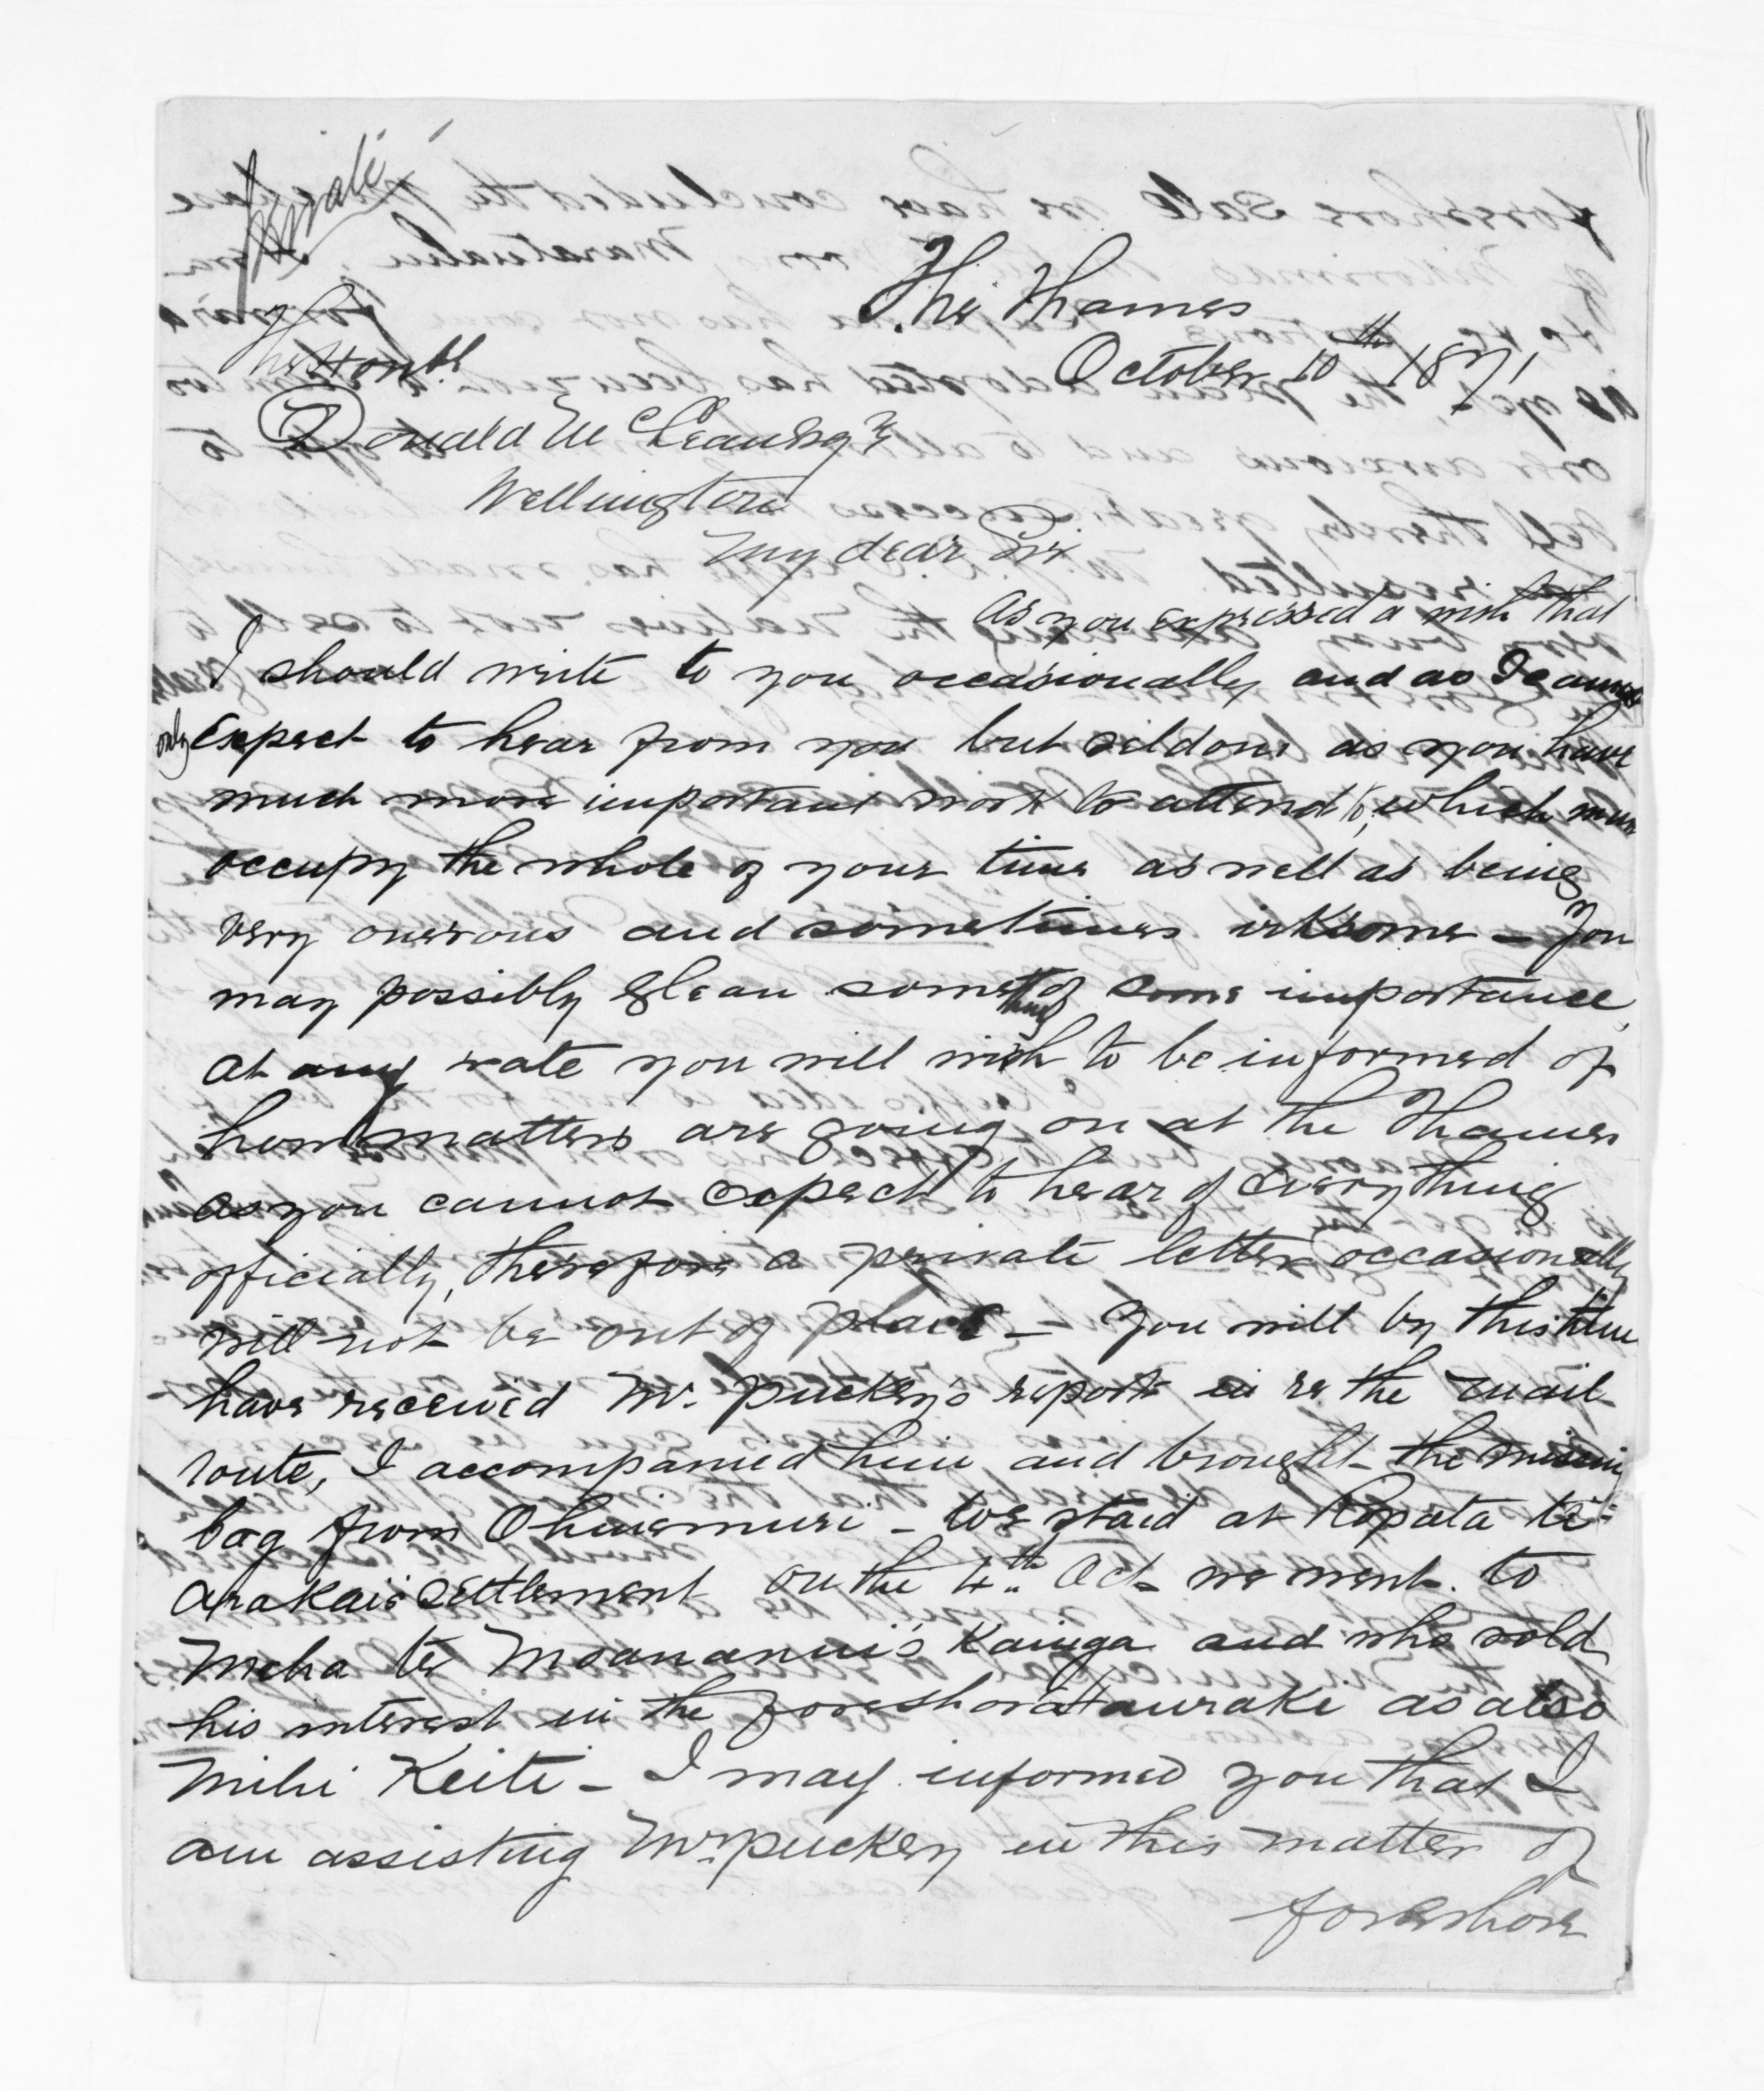 Private
The Thames
October 10th 1871
The Honble
Donald McLean Esqre
Wellington
My dear Sir
As you expressed a wish that
I should write to you occasionally and as I cannot
only expect to hear from you but seldom as you have
much more important work to attend to, which must
occupy the whole of your time as well as being
very onerous and sometimes irksome – You
may possibly glean something of some importance
at any rate you will wish to be informed of
how matters are going on at the Thames
as you cannot expect to hear of everything
officially, therefore a private letter occasionally
will not be out of place – You will by this time
have received Mr. Puckey's report in re the mail
route, I accompanied him and brought the missing
bag from Ohinemuri – We staid at Ropata te
Arakai's settlement on the 4th Oct we went to
Meha te Moananui's Kainga and who sold
his interest in the foreshore Hauraki as also
Mihi Keiti – I may informed you that I
am assisting Mr. Puckey in this matter of
foreshore